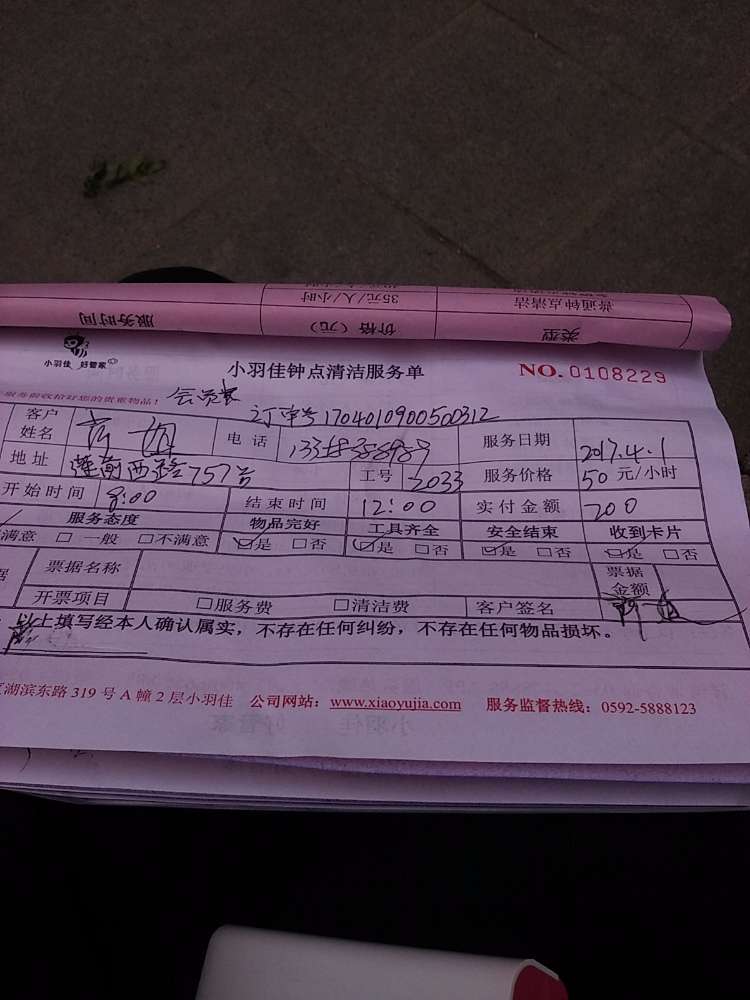 类型 价格（元） 服务时间
普通钟点清洁 35元/人/小时
小羽佳 好管家
小羽佳钟点清洁服务单 NO. 0108229
服务前收拾好您的贵重物品！
订单号1704010900500312
客户姓名 电话 服务日期 2017.4.1
地址 莲前西路757号 工号 2033 服务价格 50元/小时
开始时间 8:00 结束时间 12:00 实付金额 200
服务态度 物品完好 工具齐全 安全结束 收到卡片
满意 □一般 □不满意 ☑是 □否 ☑是 □否 ☑是 □否 ☑是 □否
票据名称 票据金额
开票项目 □服务费 □清洁费 客户签名
以上填写经本人确认属实，不存在任何纠纷，不存在任何物品损坏。
湖滨东路319号A幢2层小羽佳 公司网站：www.xiaoyujia.com 服务监督热线：0592-5888123